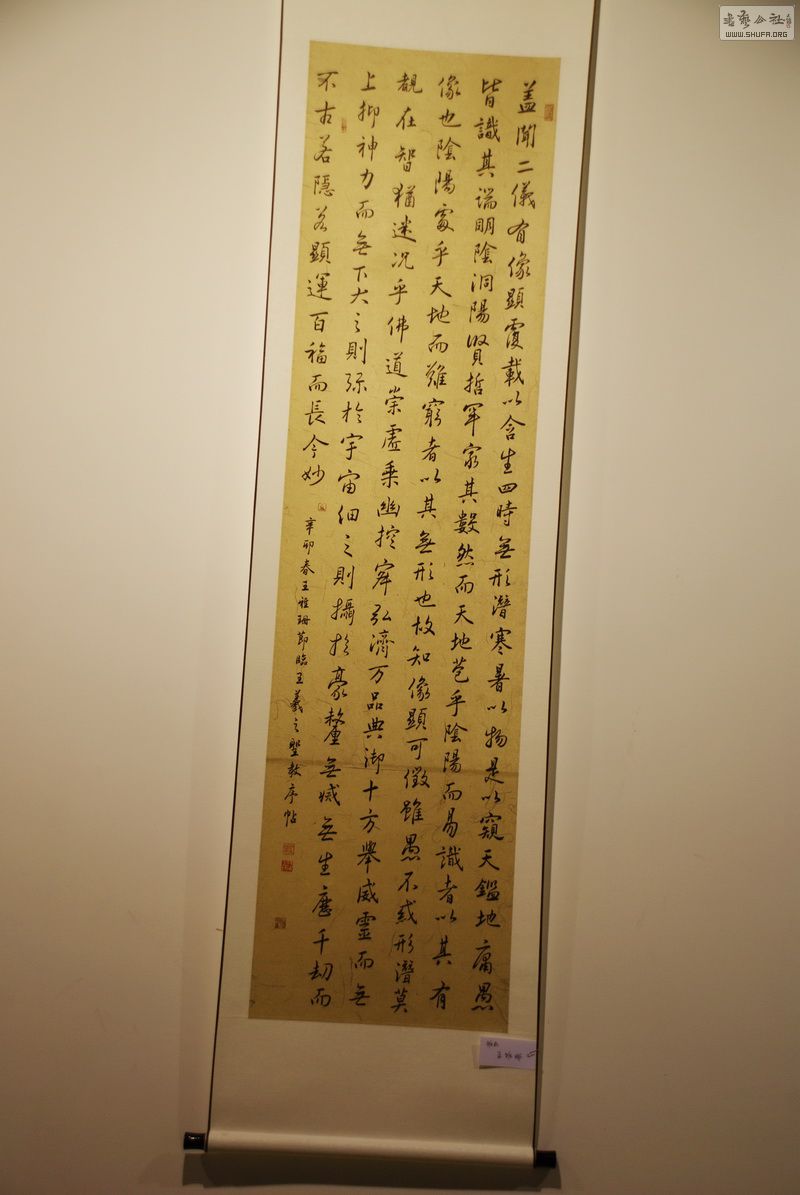 盖聞二儀有像顯覆載以含生四時無形潛寒暑以物是以窺天鑑地庸愚
皆識其端明陰洞陽賢哲罕窮其數然而天地苞乎陰陽而易識者以其有
像也陰陽處乎天地而難窮者以其無形也故知像顯可徵雖愚不惑形潛莫
覩在智猶迷況乎佛道崇虛乘幽控寂弘濟万品典御十方舉威靈而無
上抑神力而無下大之則弥於宇宙細之則攝於豪釐無滅無生應千劫而
不古若隱若顯運百福而長今妙
辛卯春王珊節臨王羲之聖教序帖
書藝公社
WWW.SHUFA.ORG